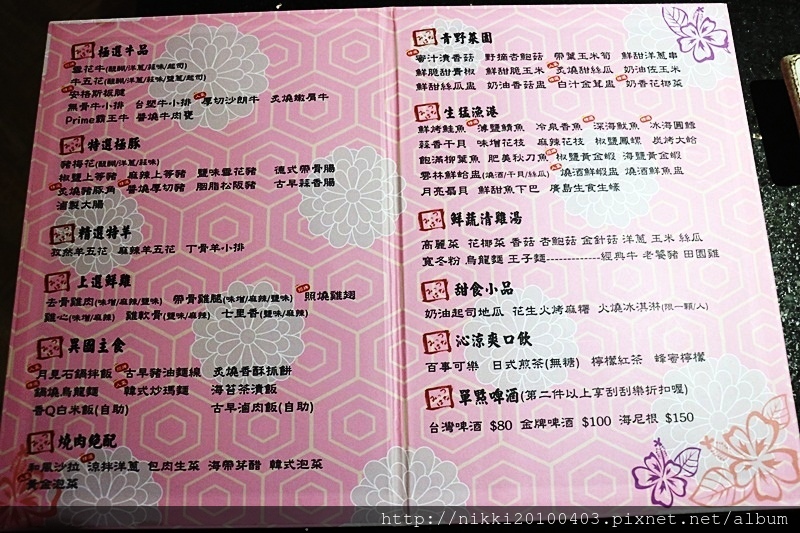 極選牛品
雪花牛(酸桐/洋蔥/蒜味/起司)
牛五花(酸桐/洋蔥/蒜味/鹽蔥/起司)
安格斯板腱
無骨牛小排 台塑牛小排 厚切沙朗牛 炙燒嫩肩牛
Prime霸王牛 醬燒牛肉甕
特選極豚
豬梅花(酸桐/洋蔥/蒜味)
椒鹽上等豬 麻辣上等豬 鹽味雪花豬 德式帶骨腸
炙燒豬豚角 醬燒厚切豬 胭脂松阪豬 古早蒜香腸
滷製大腸
精選特羊
孜然羊五花 麻辣羊五花 丁骨羊小排
上選鮮雞
去骨雞肉(味增/麻辣/鹽味) 帶骨雞腿(味增/麻辣/鹽味) 照燒雞翅
雞心(味增/麻辣) 雞軟骨(鹽味/麻辣) 七里香(鹽味/麻辣)
異國主食
月見石鍋拌飯 古早豬油麵線 炙燒香酥抓餅
鍋燒烏龍麵 韓式炒瑪麵 海苔茶漬飯
香Q白米飯(自助) 古早滷肉飯(自助)
燒肉絕配
和風沙拉 涼拌洋蔥 包肉生菜 海帶芽醋 韓式泡菜
黃金泡菜
青野菜園
蜜汁漬香菇 野摘杏鮑菇 帶葉玉米筍 鮮甜洋蔥串
鮮脆甜青椒 鮮甜脆玉米 炙燒甜絲瓜 奶油佐玉米
鮮甜絲瓜盅 奶油香菇盅 白汁金茸盅 奶香花椰菜
生猛漁港
鮮烤鮭魚 薄鹽鯖魚 冷泉香魚 深海魷魚 冰海圓鱈
蒜香干貝 味增花枝 麻辣花枝 椒鹽鳳螺 炭烤大蛤
飽滿柳葉魚 肥美秋刀魚 椒鹽黃金蝦 海鹽黃金蝦
雲林鮮蛤盅(燒酒/干貝/絲瓜) 燒酒鮮蝦盅 燒酒鮮魚盅
月亮蟲貝 鮮甜魚下巴 廣島生食生蠔
鮮蔬清雞湯
高麗菜 花椰菜 香菇 杏鮑菇 金針菇 洋蔥 玉米 絲瓜
寬冬粉 烏龍麵 王子麵-------------經典牛 老饕豬 田園雞
甜食小品
奶油起司地瓜 花生火烤麻糬 火燒冰淇淋(限一顆/人)
沁涼爽口飲
百事可樂 日式煎茶(無糖) 檸檬紅茶 蜂蜜檸檬
單點啤酒(第二件以上享刮刮樂折扣喔)
台灣啤酒 $80 金牌啤酒 $100 海尼根 $150
http://nikki20100403.pixnet.net/album